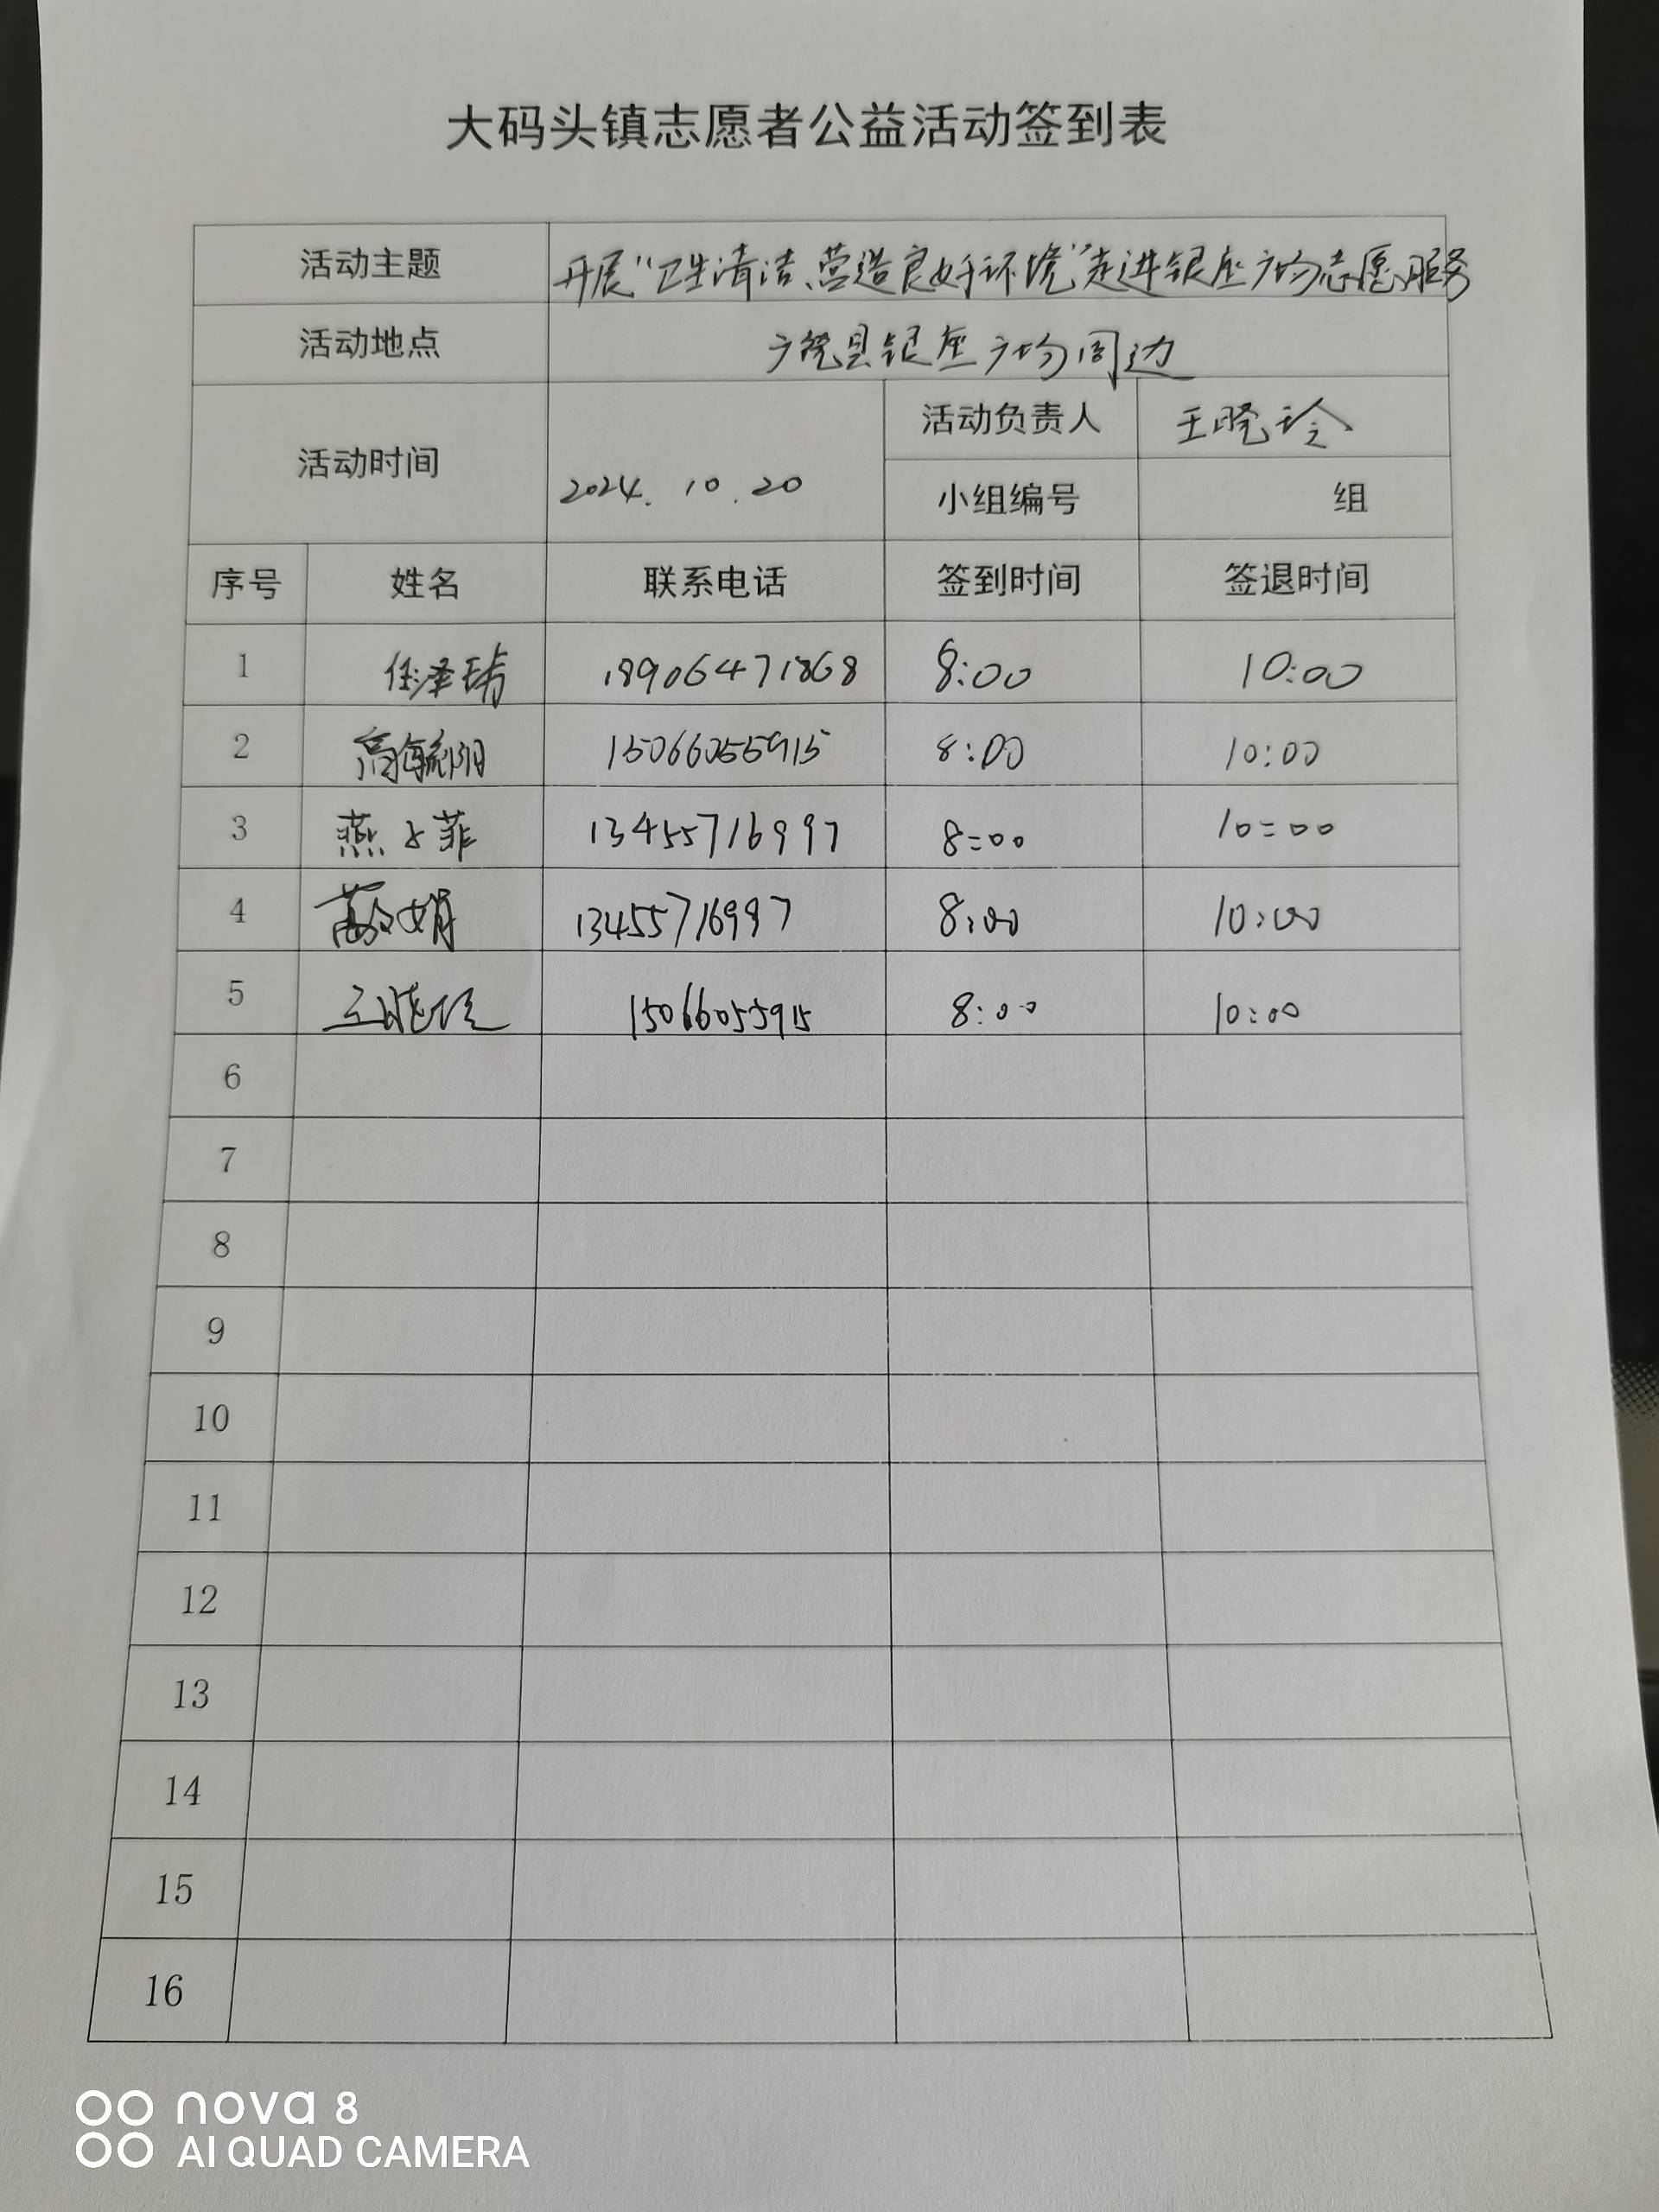 大码头镇志愿者公益活动签到表
活动主题 开展“卫生清洁、营造良好环境”走进银座广场志愿服务
活动地点 广饶县银座广场周边
活动时间 2024.10.20 活动负责人 王晓玲
小组编号 组
序号 姓名 联系电话 签到时间 签退时间
1 任泽 18906471868 8:00 10:00
2 高毓阳 15066055915 8:00 10:00
3 燕 菲 13455716997 8:00 10:00
4 娟 13455716997 8:00 10:00
5 王晓 15066055915 8:00 10:00
6
7
8
9
10
11
12
13
14
15
16
nova 8
AI QUAD CAMERA